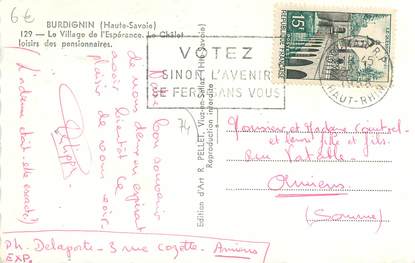 6€
BURDIGNIN (Haute-Savoie)
129 — Le Village de l'Espérance. Le Châlet
loisirs des pensionnaires.
VOTEZ
SINON L'AVENIR
SE FERA SANS VOUS
15F
HAUT-RHIN
Edition d'Art R. PELLET, Viuz-en-Sallaz (Hte-Savoie)
Reproduction interdite
74
bon souvenir
de nous deux en espérant
avoir bientôt le
plaisir de vous voir.
Philippe
(l'adresse était-elle exacte)
Monsieur et Madame
et leurs fille et fils.
rue
Amiens
(Somme)
Ph. Delaporte - 3 rue Cozette - Amiens
EXP.